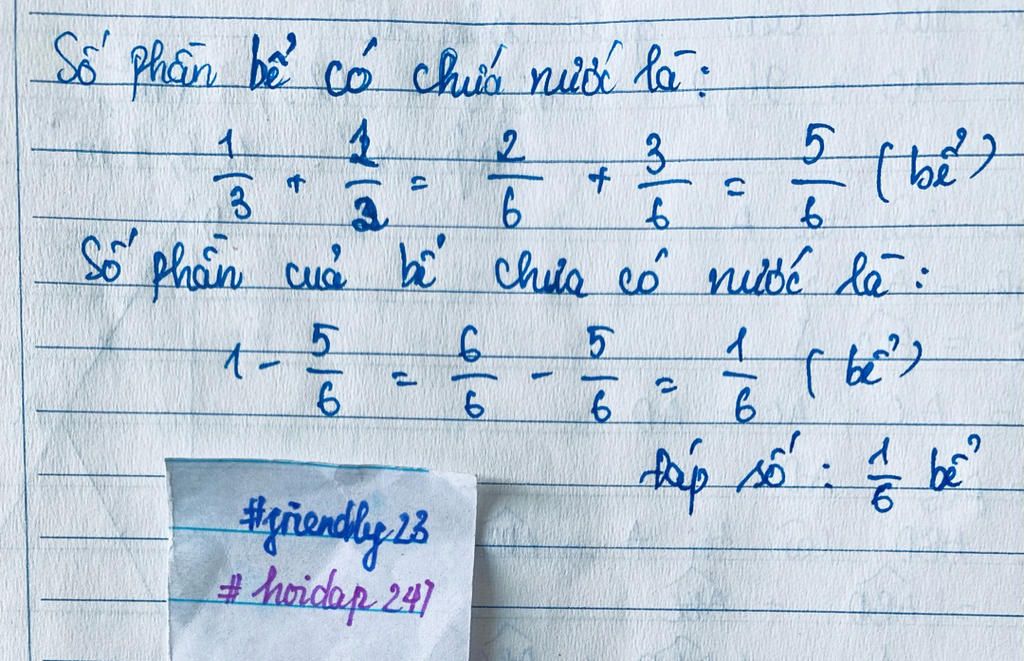 Số phần bể có chứa nước là:
1/3 + 1/2 = 2/6 + 3/6 = 5/6 (bể)
Số phần của bể chưa có nước là:
1 - 5/6 = 6/6 - 5/6 = 1/6 (bể)
Đáp số: 1/6 bể
#friendly23
#hoidap247